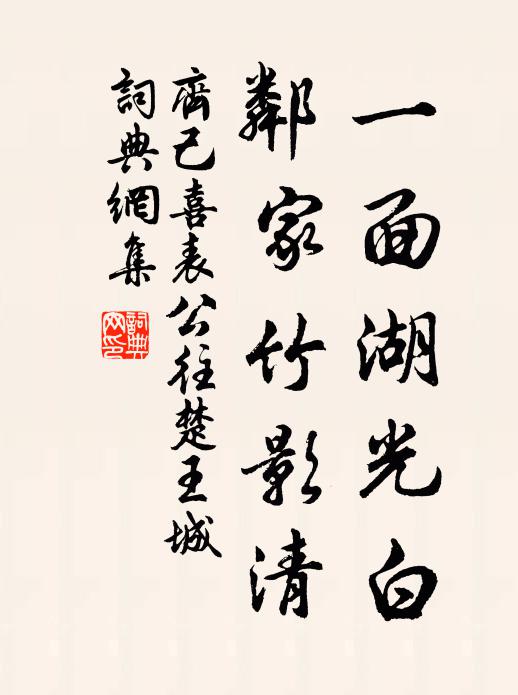 一面湖光白
鄰家竹影清
齊己喜表公往楚王城
詞典網集
詞典
网印